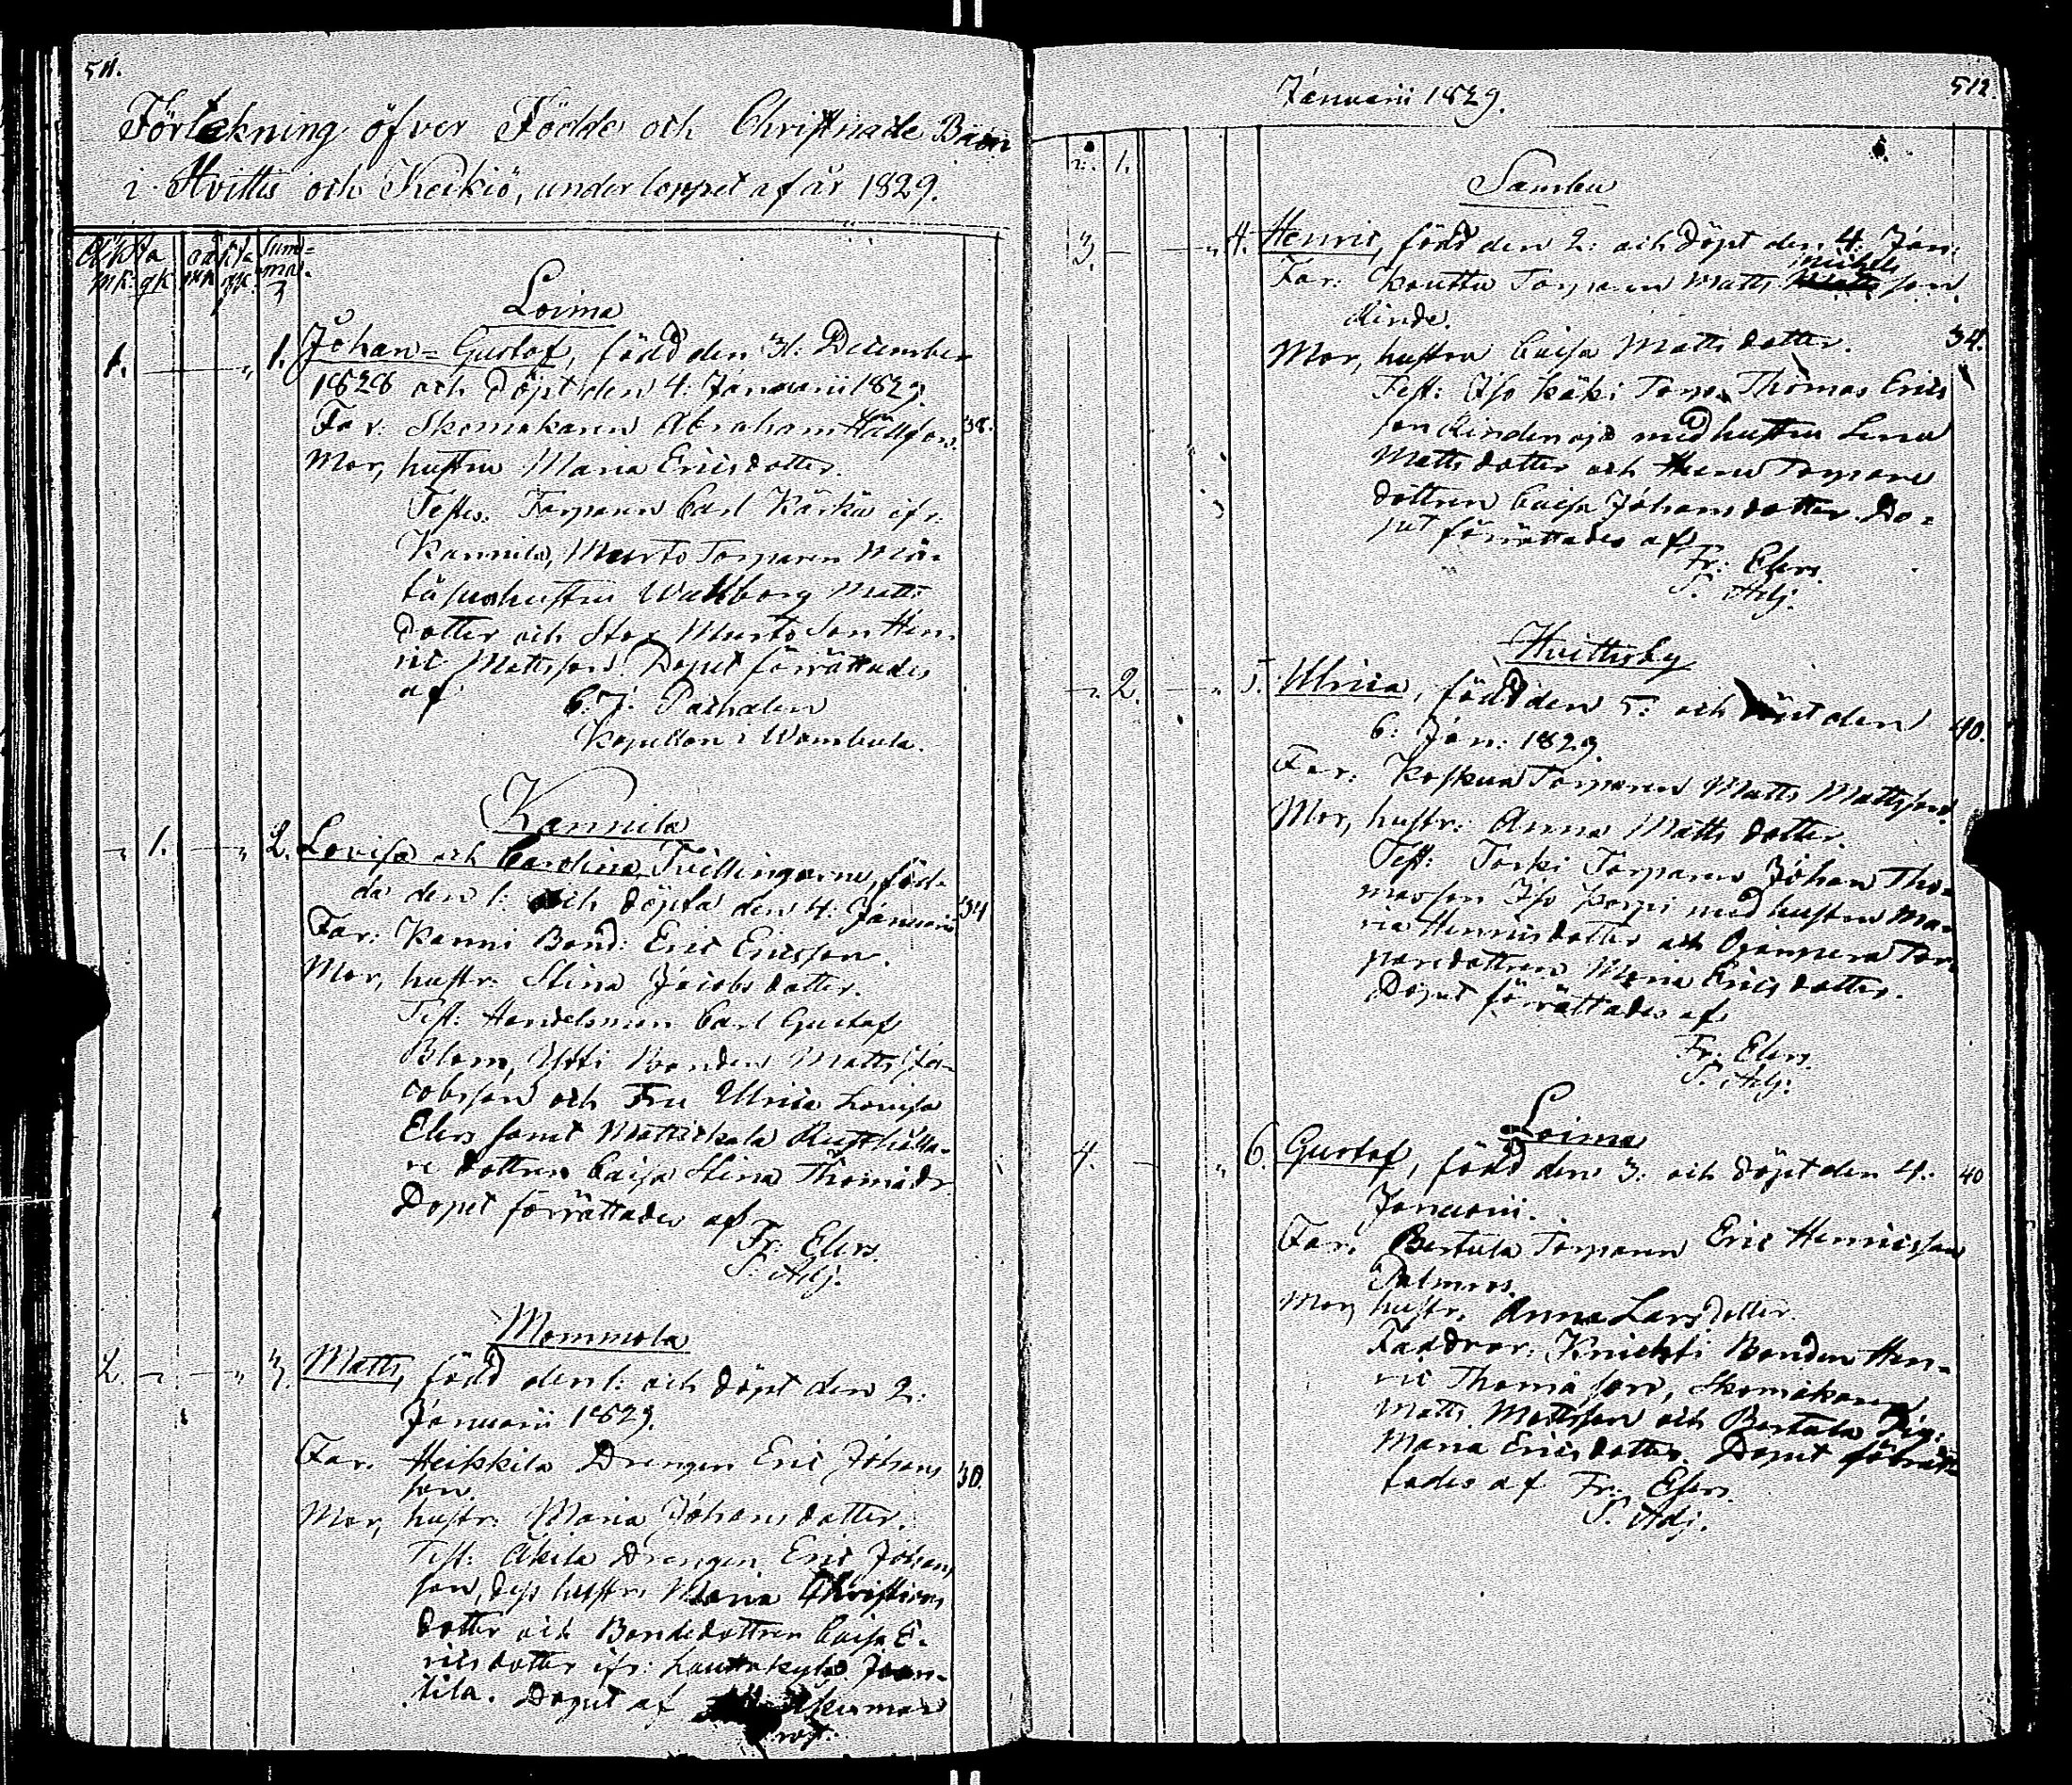 511.
Förtekning öfver Födde och Christnade Barn
i Hvittis och Keikiö, under loppet af år 1829.
Äkta oäkta Sum-
mk. qk. mk. qk. ma.
Loima
1. 1. Johan-Gustof, född den 31. December
1828 och döpt den 4. Januarii 1829.
Far. Skomakaren Abraham Hällfors. 38.
Mor, hustru Maria Ericsdotter.
Testes: Torparen Carl Kärki ifr.
Kannila, Murto Torparen
hustru Wallborg Matts
dotter och Stor Murto Son Hen-
ric Mattsson. Dopet förrättades
af C. J. Paihalen
Kapellan i Wambula.
Kannila
1. 2. Lovisa och Carolina, Tvillingarne, föd-
da den 1: och döpta den 4: Januarii 34
Far: Kanni Bond: Eric Ericsson.
Mor, hustr: Stina Jacobsdotter.
Test: Handelsman Carl Gustaf
Blom, Yhti Bonden Matts Ja-
cobsson och Fru Ulrica Lovisa
Elers samt Mattickala Rusthålla-
re dottren Caisa Stina Thomædr.
Dopet förrättades af
Fr: Elers.
P. Adj.
Mommola
2. 3. Matts, född den 1: och döpt den 2:
Januarii 1829.
Far. Heikkila Drengen Eric Johans
son 30.
Mor, hustr: Maria Johansdotter.
Test: Äkila Drengen Eric Johans
son, dess hustru Maria Christians
dotter och Bondedottren Caisa E-
ricsdotter ifr: Lauttakylä Jaan-
tila. Dopet af
512.
Januarii 1829.
2. 1.
Sambu
3. 4. Henric, född den 2: och döpt den 4: Jan:
Michels
Far: Koutto Torparen Matts son
Rinde.
Mor, hustru Caisa Matts dotter. 34.
Test: Iso Käki Torp. Thomas Erics
son Rindenojo med hustru Lena
Mattsdotter och Torpare
dottren Caisa Johansdotter. Do-
pet förrättades af
Fr: Elers.
P. Adj.
Hvittisby
2. 5. Ulrica, född den 5: och döpt den 40.
6: Jan: 1829.
Far: Koskua Torparen Matts Mattsson.
Mor, hustr: Anna Matts dotter.
Test: Torki Torparen Johan Tho-
masson Iso Korpi med hustru Ma-
ria Henricsdotter och Ojanpera Tor-
paredottren Maria Ericsdotter.
Dopet förrättades af
Fr: Elers.
P. Adj:
Loima
4. 6. Gustaf, född den 3: och döpt den 4: 40
Januarii.
Far. Bertula Torparen Eric Henricsson
Palmros.
Mor, hustr. Anna Larsdotter.
Faddrar: Knichti Bonden Hen-
ric Thomasson, Skomakaren
Matts Mattsson och Bertula Pig:
Maria Ericsdotter. Dopet förrät-
tades af Fr: Elers.
P. Adj.